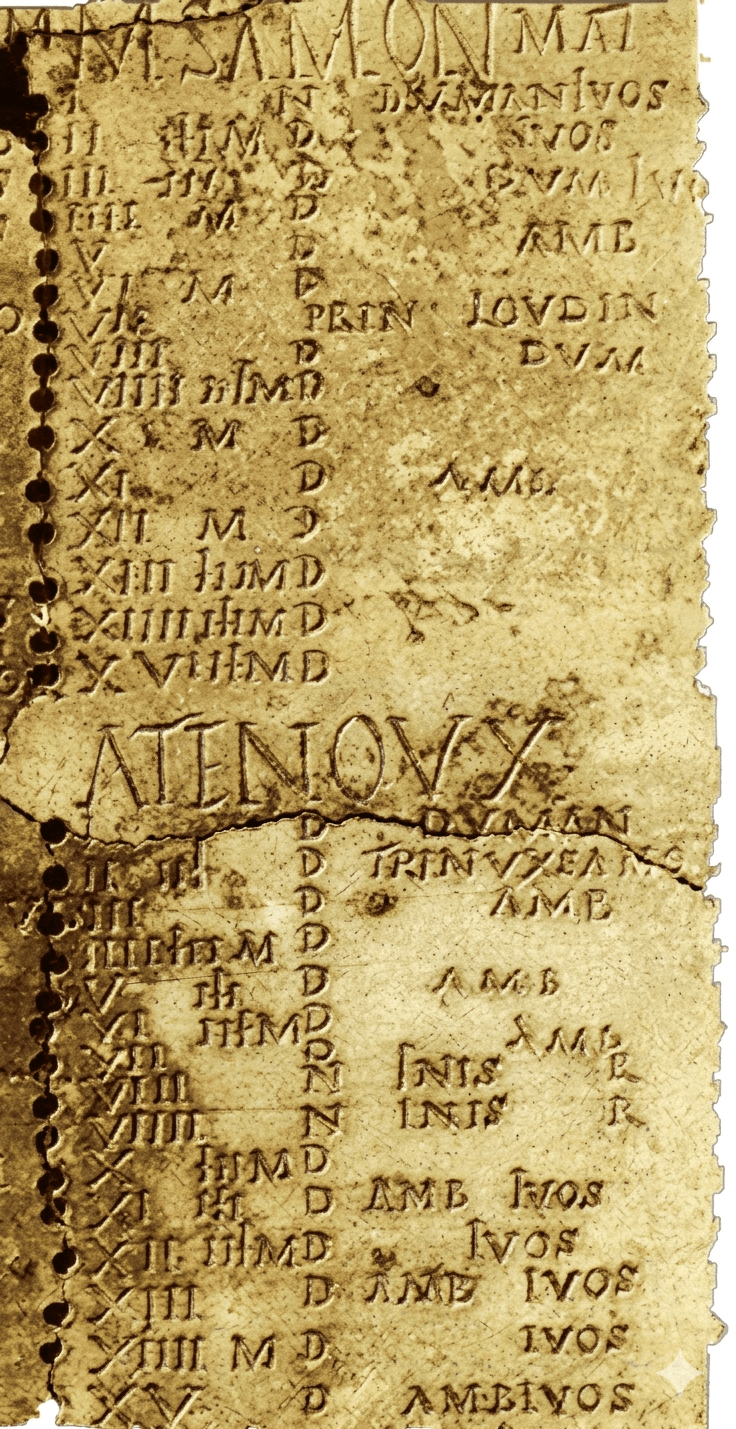 M SAMON MAT
I N DVMAN IVOS
II M D IVOS
III D DVM IVO
IIII M D
V D AMB
VI M D
VII PRIN LOVDIN
VIII D DVM
VIIII M D
X M D
XI D AMB
XII M D
XIII M D
XIIII M D
XV M D
ATENOVX
D DVMAN
II D TRINVXSAMO
III D AMB
IIII M D
V D AMB
VI M D
VII D AMB
VIII N INIS R
VIIII N INIS R
X M D
XI D AMB IVOS
XII M D IVOS
XIII D AMB IVOS
XIIII M D IVOS
XV D AMB IVOS